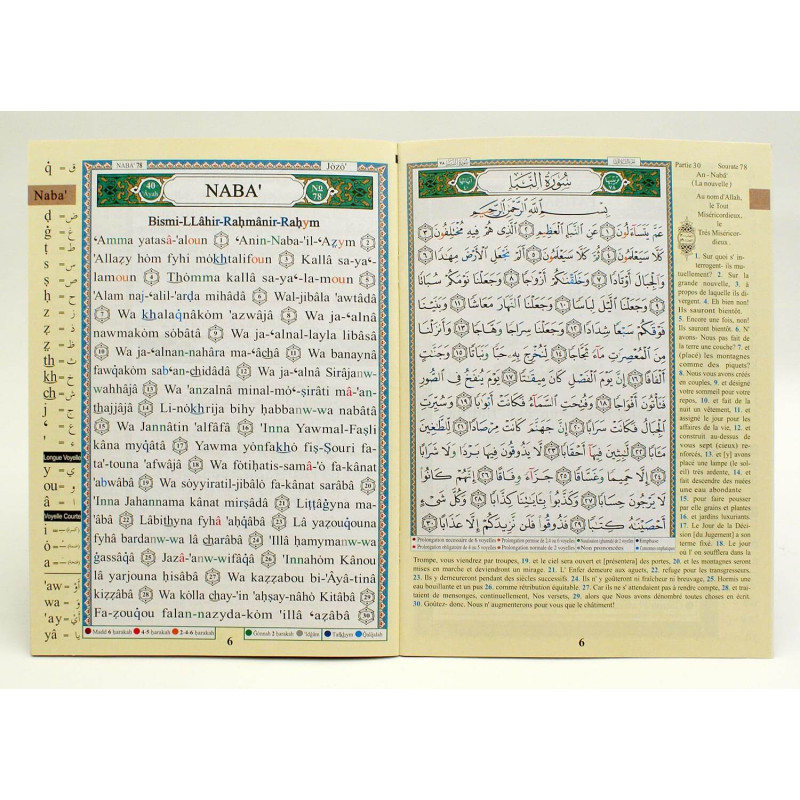 NABA' 78
Jòzò'
40
Ayah
NABA'
Nω
78
Bismi-LLâhir-Raḥmânir-Raḥym
ʿAmma yatasâ-'aloun 1 ʿAnin-Naba-'il-ʿAẓym 2
'Allaẓy hòm fyhi mòkhtalifoun 3 Kallâ sa-yaʿ-
lamoun 4 Thòmma kallâ sa-yaʿ-la-moun 5
'Alam naj-ʿalil-'arḍa mihâdâ 6 Wal-jibâla 'awtâdâ
7 Wa khalaq̇nâkòm 'azwâjâ 8 Wa ja-ʿalnâ
nawmakòm sòbâtâ 9 Wa ja-ʿalnal-layla libâsâ
10 Wa ja-ʿalnan-nahâra ma-ʿâchâ 11 Wa banaynâ
fawq̇akòm sabʿan-chidâdâ 12 Wa ja-ʿalnâ Sirâjanw-
wahhâjâ 13 Wa 'anzalnâ minal-mòʿ-ṣirâti mâ-'an-
thajjâjâ 14 Li-nòkhrija bihy ḥabbanw-wa nabâtâ
15 Wa Jannâtin 'alfâfâ 16 'Inna Yawmal-Faṣli
kâna myq̇âtâ 17 Yawma yònfakhò fiṣ-Ṣouri fa-
ta'-touna 'afwâjâ 18 Wa fòtiḥatis-samâ-'ò fa-kânat
'abwâbâ 19 Wa sòyyiratil-jibâlò fa-kânat sarâbâ 20
'Inna Jahannama kânat mirṣâdâ 21 Liṭṭâġyna ma-
'âbâ 22 Lâbithyna fyhâ 'aḥq̇âbâ 23 Lâ yaẓouq̇ouna
fyhâ bardanw-wa lâ charâbâ 24 'Illâ ḥamymanw-wa
ġassâq̇â 25 Jazâ-'anw-wifâq̇â 26 'Innahòm Kânou
lâ yarjouna ḥisâbâ 27 Wa kaẓẓabou bi-'Âyâ-tinâ
kiẓẓâbâ 28 Wa kòlla chay-'in 'aḥṣay-nâhò Kitâbâ 29
Fa-ẓouq̇ou falan-nazyda-kòm 'illâ ʿaẓâbâ 30
Madd 6 ḥarakah 4-5 ḥarakah 2-4-6 ḥarakah Ġònnah 2 ḥarakah 'Idġâm Tafkhym Q̇alq̇alah
6
q̇ = ق
Naba'
ḍ = ض
ġ = غ
ṭ = ط
s = س
ṣ = ص
ḥ = ح
z = ز
th = ث
kh = خ
ch = ش
j = ج
Longue Voyelle
y =
ou =
â =
Voyelle Courte
i =
ò =
a =
'aw =
wa =
'ay =
yâ =
سُورَةُ النَّبَإِ
بِسْمِ اللَّهِ الرَّحْمَٰنِ الرَّحِيمِ
عَمَّ يَتَسَآءَلُونَ ١ عَنِ النَّبَإِ الْعَظِيمِ ٢ الَّذِى هُمْ فِيهِ مُخْتَلِفُونَ ٣
كَلَّا سَيَعْلَمُونَ ٤ ثُمَّ كَلَّا سَيَعْلَمُونَ ٥ أَلَمْ نَجْعَلِ الْأَرْضَ مِهَٰدًا ٦
وَالْجِبَالَ أَوْتَادًا ٧ وَخَلَقْنَٰكُمْ أَزْوَٰجًا ٨ وَجَعَلْنَا نَوْمَكُمْ سُبَاتًا
٩ وَجَعَلْنَا الَّيْلَ لِبَاسًا ١٠ وَجَعَلْنَا النَّهَارَ مَعَاشًا ١١ وَبَنَيْنَا
فَوْقَكُمْ سَبْعًا شِدَادًا ١٢ وَجَعَلْنَا سِرَاجًا وَهَّاجًا ١٣ وَأَنزَلْنَا
مِنَ الْمُعْصِرَٰتِ مَآءً ثَجَّاجًا ١٤ لِّنُخْرِجَ بِهِۦ حَبًّا وَنَبَاتًا ١٥ وَجَنَّٰتٍ
أَلْفَافًا ١٦ إِنَّ يَوْمَ الْفَصْلِ كَانَ مِيقَٰتًا ١٧ يَوْمَ يُنفَخُ فِى الصُّورِ
فَتَأْتُونَ أَفْوَاجًا ١٨ وَفُتِحَتِ السَّمَآءُ فَكَانَتْ أَبْوَٰبًا ١٩ وَسُيِّرَتِ
الْجِبَالُ فَكَانَتْ سَرَابًا ٢٠ إِنَّ جَهَنَّمَ كَانَتْ مِرْصَادًا ٢١ لِّلطَّٰغِينَ
مَـَٔابًا ٢٢ لَّٰبِثِينَ فِيهَآ أَحْقَابًا ٢٣ لَّا يَذُوقُونَ فِيهَا بَرْدًا وَلَا شَرَابًا
٢٤ إِلَّا حَمِيمًا وَغَسَّاقًا ٢٥ جَزَآءً وِفَاقًا ٢٦ إِنَّهُمْ كَانُوا
لَا يَرْجُونَ حِسَابًا ٢٧ وَكَذَّبُوا بِـَٔايَٰتِنَا كِذَّابًا ٢٨ وَكُلَّ شَىْءٍ
أَحْصَيْنَٰهُ كِتَٰبًا ٢٩ فَذُوقُوا فَلَن نَّزِيدَكُمْ إِلَّا عَذَابًا ٣٠
Prolongation nécessaire de 6 voyelles Prolongation permise de 2,4 ou 6 voyelles Nasalisation (ghunnah) de 2 voyelles Emphase
Prolongation obligatoire de 4 ou 5 voyelles Prolongation normale de 2 voyelles Non prononcées
Partie 30 Sourate 78
An - Nabâ'
(La nouvelle)
Au nom d'Allah,
le Tout
Miséricordieux,
le
Très Miséricor-
dieux .
1. Sur quoi s' in-
terrogent- ils mu-
tuellement? 2. Sur la
grande nouvelle, 3. à
propos de laquelle ils di-
vergent. 4. Eh bien non!
Ils sauront bientôt.
5. Encore une fois, non!
Ils sauront bientôt. 6. N'
avons- Nous pas fait de
la terre une couche? 7. et
(placé) les montagnes
comme des piquets?
8. Nous vous avons créés
en couples, 9. et désigné
votre sommeil pour votre
repos, 10. et fait de la
nuit un vêtement, 11. et
assigné le jour pour les
affaires de la vie, 12. et
construit au-dessus de
vous sept (cieux) ren-
forcés, 13. et [y] avons
placé une lampe (le sol-
eil) très ardente, 14. et
fait descendre des nuées
une eau abondante
15. pour faire pousser
par elle grains et plantes
16. et jardins luxuriants.
17. Le Jour de la Décis-
ion [du Jugement] a son
terme fixé. 18. Le jour
où l' on soufflera dans la
Trompe, vous viendrez par troupes, 19. et le ciel sera ouvert et [présentera] des portes, 20. et les montagnes seront
mises en marche et deviendront un mirage. 21. L' Enfer demeure aux aguets, 22. refuge pour les transgresseurs.
23. Ils y demeureront pendant des siècles successifs. 24. Ils n' y goûteront ni fraîcheur ni breuvage, 25. Hormis une
eau bouillante et un pus 26. comme rétribution équitable. 27. Car ils ne s'attendaient pas à rendre compte, 28. et trai-
taient de mensonges, continuellement, Nos versets, 29. alors que Nous avons dénombré toutes choses en écrit.
30. Goûtez- donc, Nous n' augmenterons pour vous que le châtiment!
6